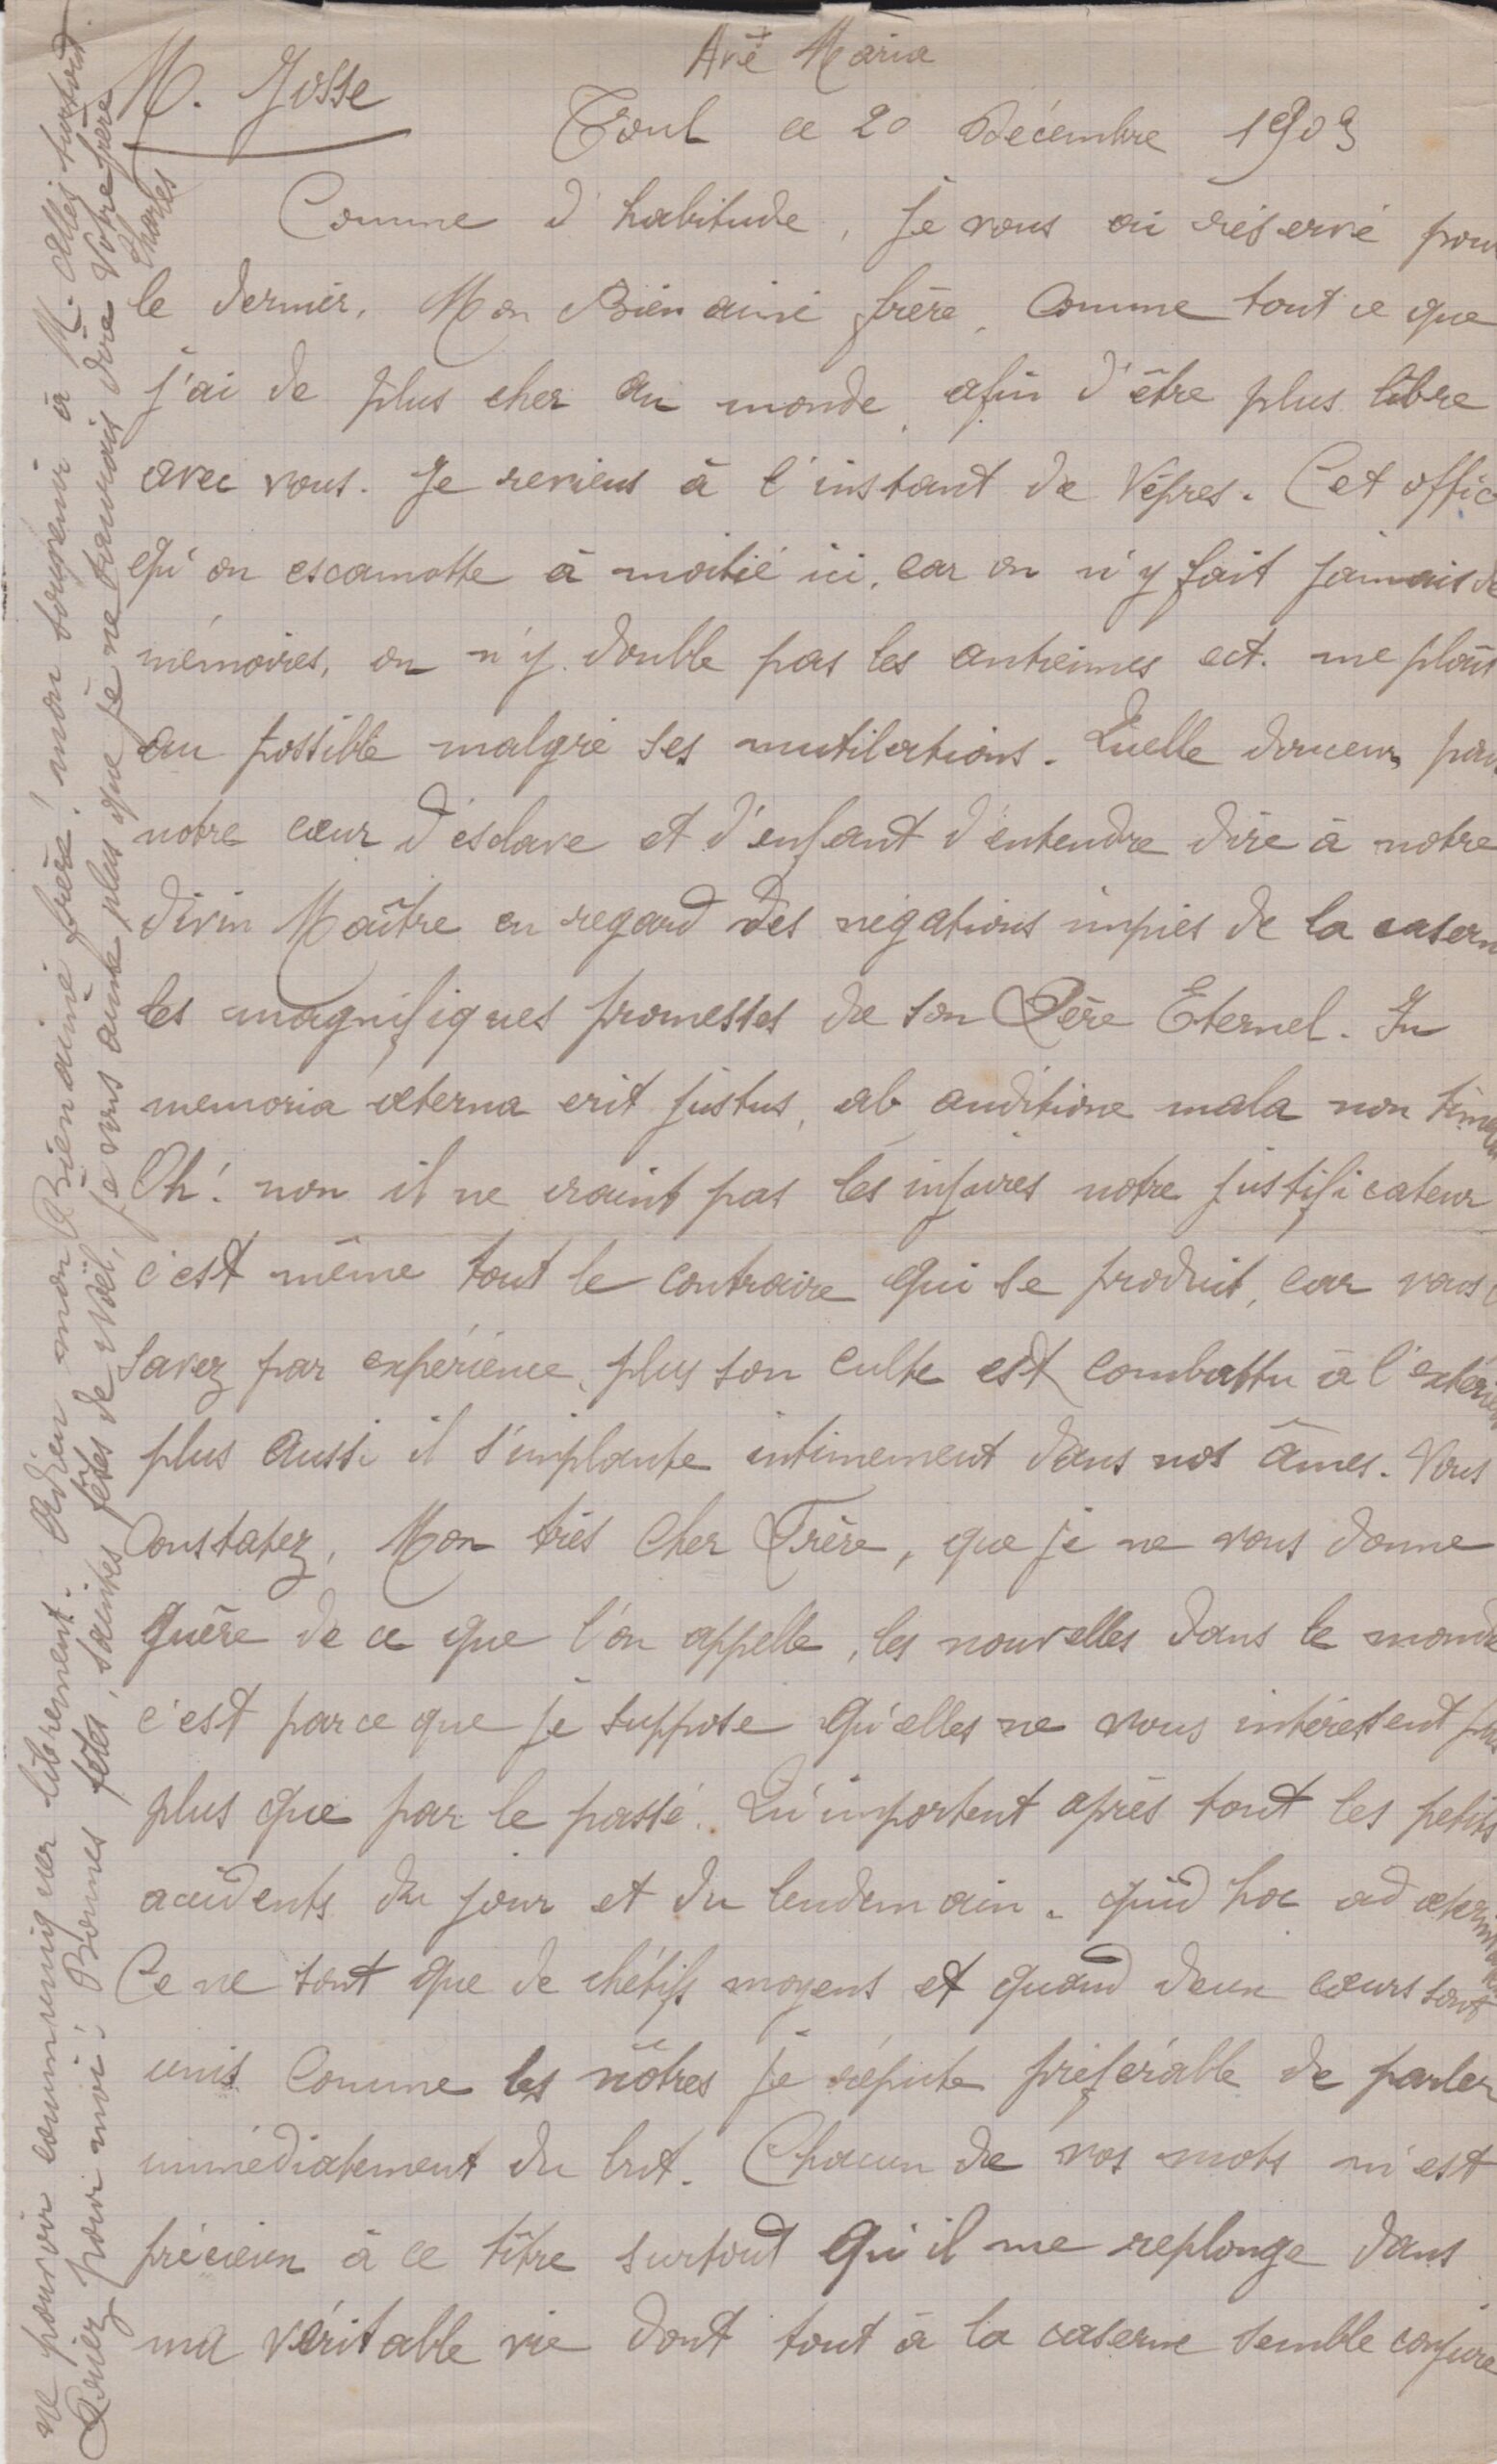 Avé Maria
M. Josse
Toul ce 20 Décembre 1903
Comme d'habitude, je vous ai réservé pour
le dernier, Mon Bien aimé frère, comme tout ce que
j'ai de plus cher au monde, afin d'être plus libre
avec vous. Je reviens à l'instant de Vêpres. Cet offic
qu'on escamotte à moitié ici, car on n'y fait jamais de
mémoires, on n'y double pas les antiennes ect. me plaît
au possible malgré ses mutilations. Quelle douceur pour
notre cœur d'esclave et d'enfant d'entendre dire à notre
divin Maître en regard des négations impies de la casern
les magnifiques promesses de son Père Eternel. In
memoria æterna erit justus, ab auditione mala non time
Oh! non il ne craint pas les injures notre justificateur
c'est même tout le contraire qui se produit, car vous
savez par expérience, plus son culte est combattu à l'extérieur
plus aussi il s'implante intimement dans nos âmes. Vous
constatez, Mon très Cher Frère, que je ne vous donne
guère de ce que l'on appelle, les nouvelles dans le monde
c'est parce que je suppose qu'elles ne vous intéressent pas
plus que par le passé. Qu'importent après tout les petits
accidents du jour et du lendemain. quid hoc ad æternitatem
Ce ne sont que de chétifs moyens et quand deux cœurs sont
unis comme les nôtres je répute préférable de parler
immédiatement du but. Chacun de vos mots m'est
précieux à ce titre surtout qu'il me replonge dans
ma véritable vie dont tout à la caserne semble conjuré
ne pouvoir communiquer librement. Adieu mon Bien aimé frère! mon souvenir à M. surtout
Priez pour moi! Bonnes fêtes, saintes fêtes de Noël, je vous aime plus que je ne saurais dire Votre frère
Charles